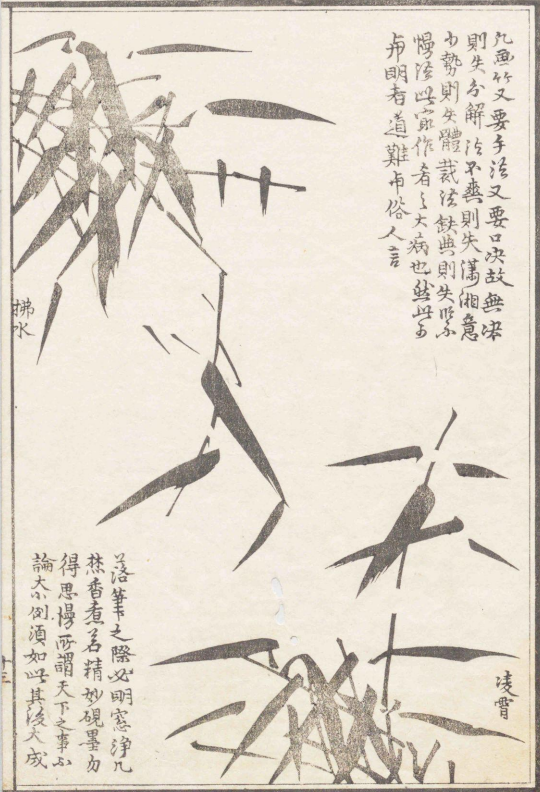 凡画竹又要手法又要口决故無决
則失分解法不爽則失瀟湘意
勢則失體裁法缺典則失
慢法此寔作者之大病也然此
与明者道難与俗人言
拂水
凌霄
落筆之際必明窓淨几
焚香煮茗精妙硯墨勿
得思慢所謂天下之事不
論大小例須如此其後大成
十三